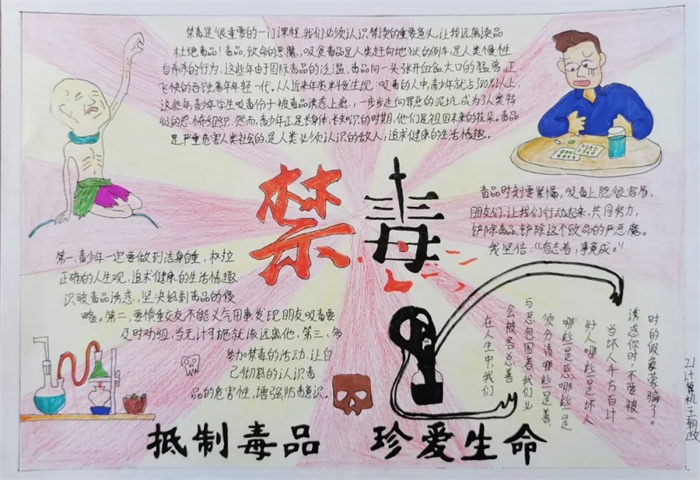 禁毒是很重要的一门课程,我们必须认识禁毒的重要意义,让我远离毒品
杜绝毒品!毒品,致命的恶魔,吸食毒品是人类赶向地狱的列车,是人类慢性
自杀的行为,这些年由于国际毒品的泛滥,毒品向一头张开血盆大口的猛兽,正
飞快的吞饮青年年轻一代。从以近年来科学发现,吸毒的人中,青少年就占30%以上,
这些年,青少年学生吸毒份子被毒品诱惑上瘾,一步步走向罪恶的泥坑,成为了人类
的恐怖组织.然而,青少年正是长身体长知识的时期,他们是祖国未来的花朵。毒品
是严重危害人类社会的,是人类必须认识的敌人,追求健康的生活情趣。
禁毒
毒品时刻要警惕,吸毒上瘾很容易,
朋友们,让我们行动起来,共同努力,
铲除毒品,铲除这个致命的严恶魔。
我坚信,“有志者,事竟成。”
第一、青少年一定要做到洁身自重,树立
正确的人生观,追求健康的生活情趣
识破毒品诱惑,坚决抵制毒品的侵
蚀。第二,要慎重交友不能义气用事发现朋友吸毒要
及时劝阻,当无计可施就该远离他。第三、多
参加禁毒的活动,让自
己彻底的认识毒
品的危害性,增强防毒意识。
时的假象蒙骗了。
诱惑你时,不要被一
当坏人千方百计
好人哪些是坏人
哪些是恶哪些是
须分清哪些是善
与恶包围着,我们必
会被各总善
在人生中,我们
21计算机王朝政
抵制毒品 珍爱生命